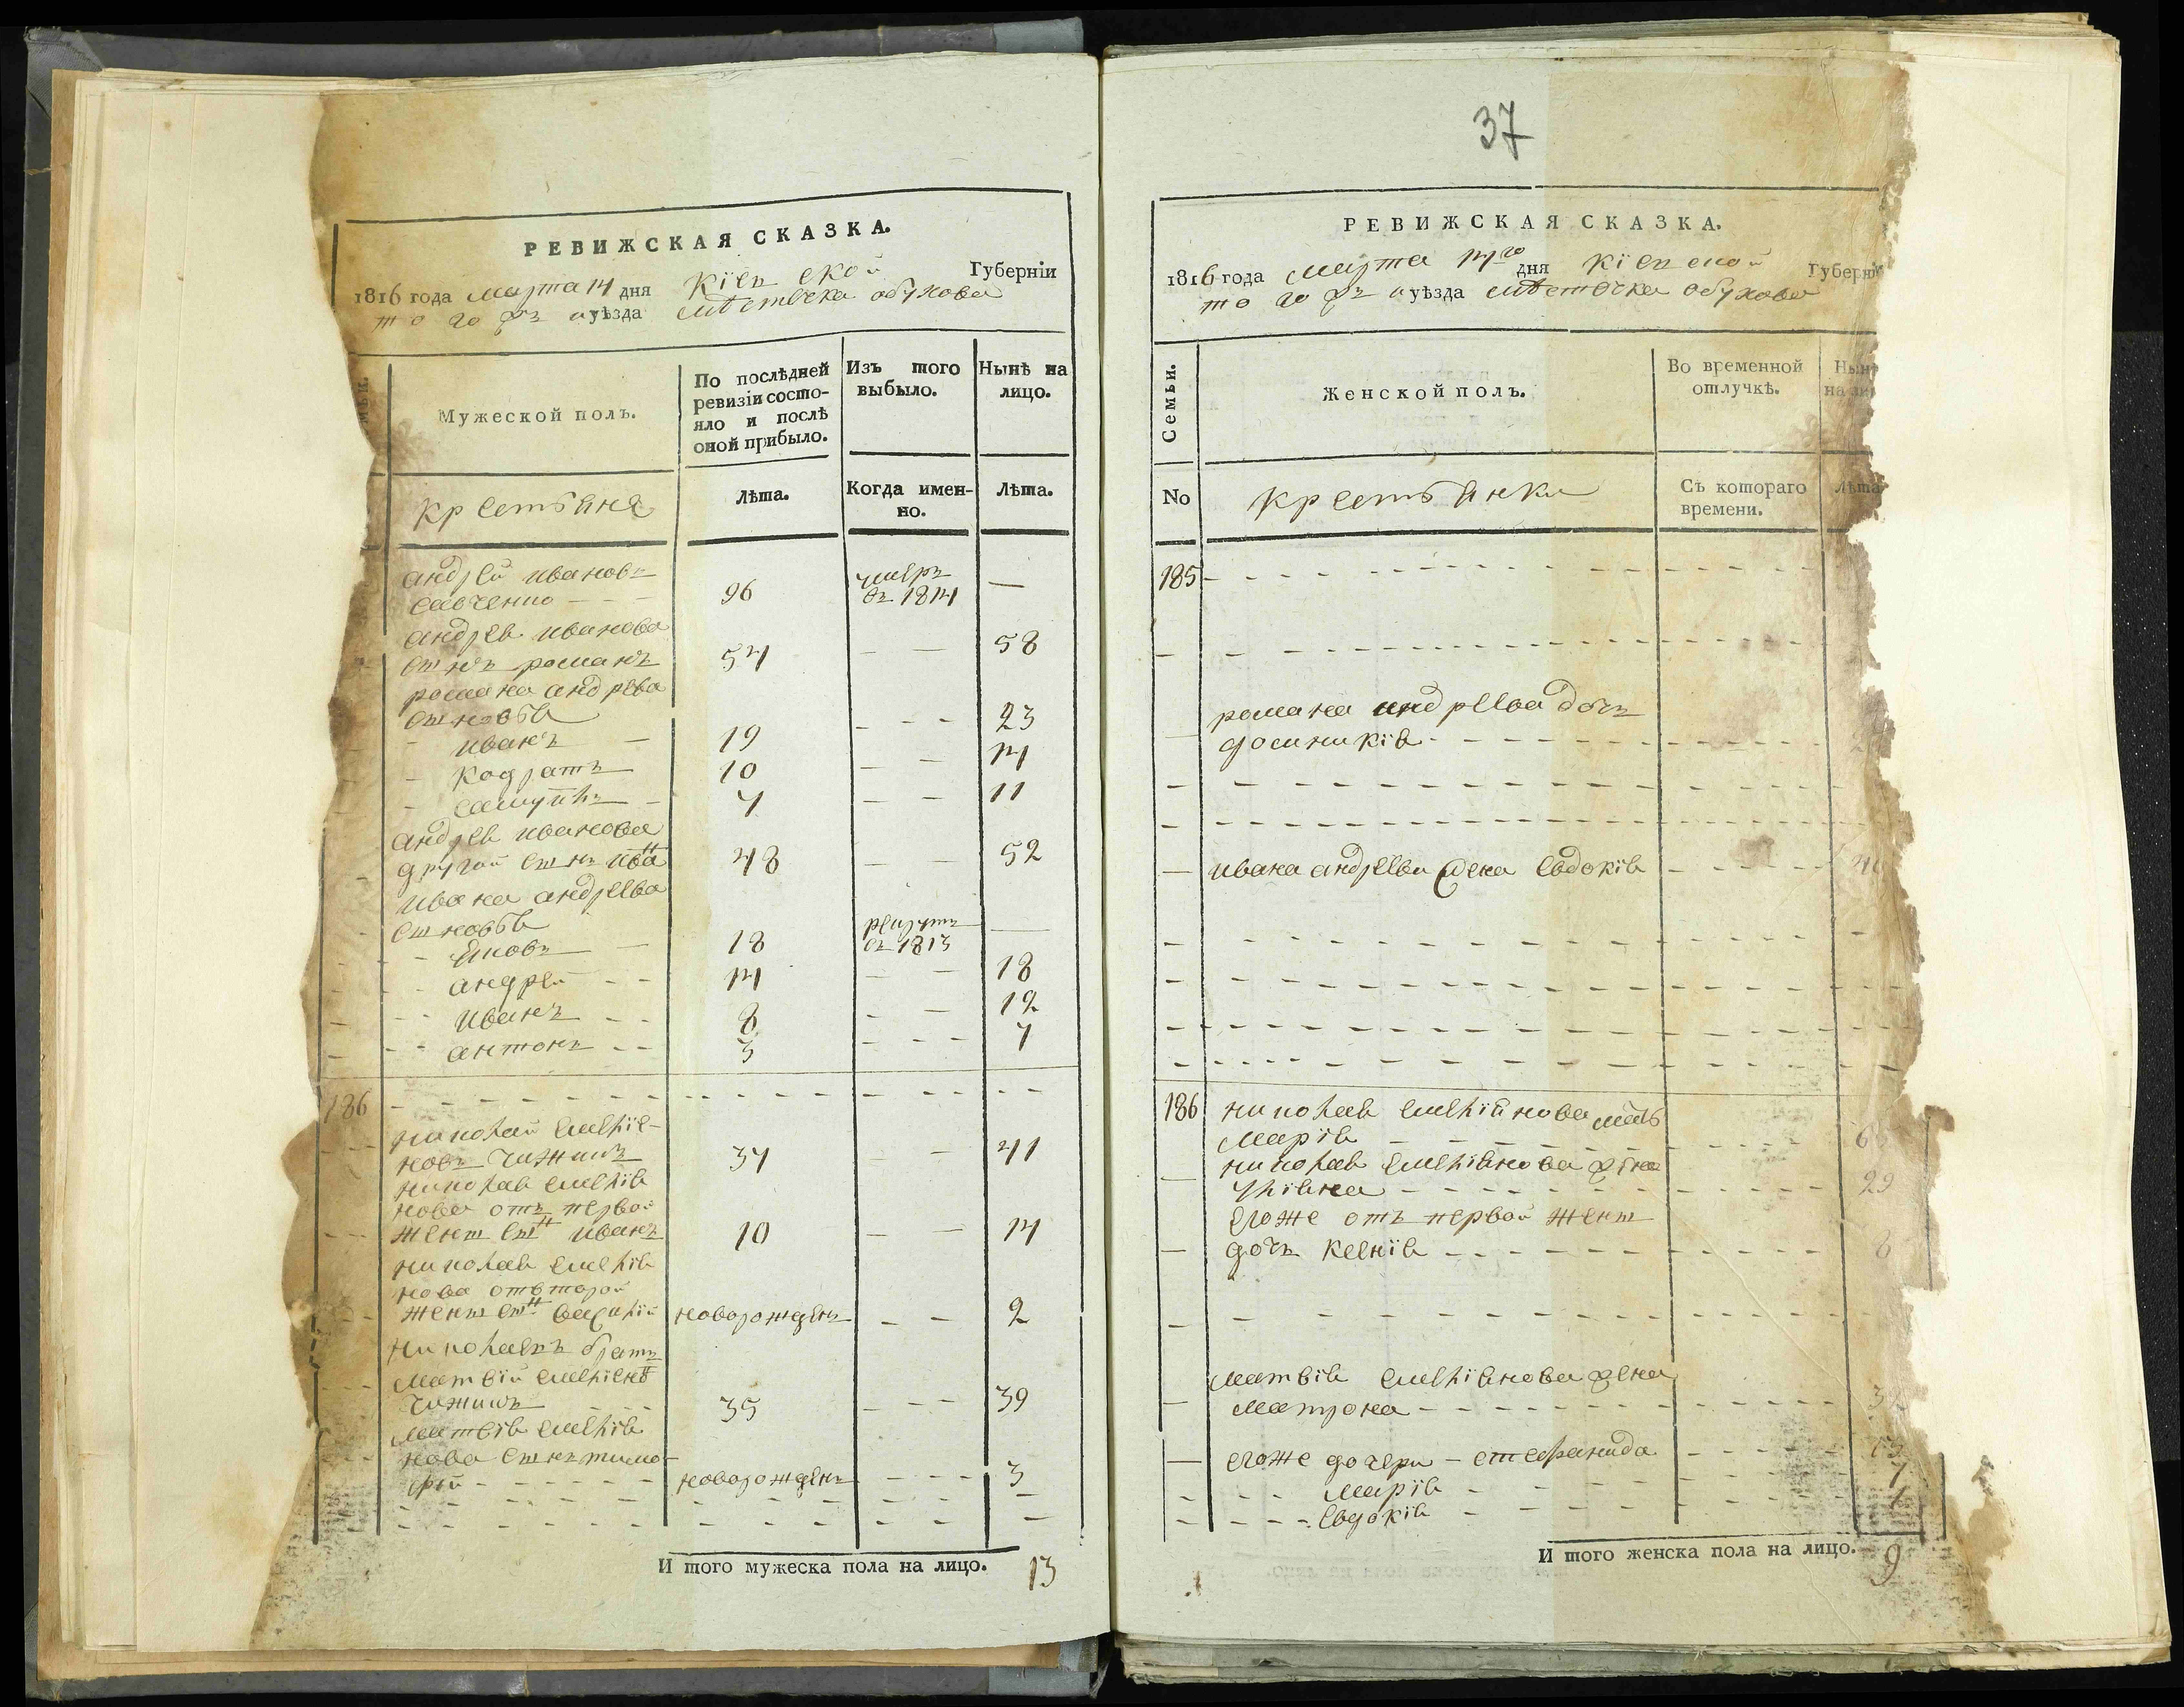 РЕВИЖСКАЯ СКАЗКА.
1816 года марта 14 дня Кіевской Губерніи
того жъ уѣзда мѣстечка обухова
Мужеской полъ.
По послѣдней ревизіи состо-
яло и послѣ
оной прибыло.
Изъ того выбыло.
Нынѣ на лицо.
крестьяне
Лѣта.
Когда имен-
но.
Лѣта.
андрей ивановъ
савченко 96 умеръ въ 1814 —
андрея иванова
сынъ романъ 54 — — 58
романа андреева
сыновья
иванъ 19 - - - 23
кодратъ 10 — — 14
самуйлъ 7 — — 11
андрея иванова
другой сынъ иванъ 48 — — 52
ивана андреева
сыновья
яковъ 18 рекрутъ въ 1813 —
андрей 14 — — 18
иванъ 8 - — 12
антонъ 3 - - - 7
186 - - - - - - - -
николай емеліе-
новъ чижикъ 37 - — 41
николая емелія
нова отъ первой
жены сынъ иванъ 10 — — 14
николая емелія
нова отъ второй
жены сынъ василій новорожденъ — — 2
николаевъ братъ
матвій емеліеновъ
чижикъ 35 - - - 39
матвія емелія
нова сынъ тимо-
фій новорожденъ - - - 3
И того мужеска пола на лицо. 13
37
РЕВИЖСКАЯ СКАЗКА.
1816 года марта 14го дня кіевской Губерніи
того жъ уѣзда мѣстечка обухова
Семьи.
Женской полъ.
Во временной
отлучкѣ.
Нынѣ
на ли
No
крестьянки
Съ котораго
времени.
Лѣта
185 - - - - - - - -
романа андреева дочъ
домникія
ивана андреева жена евдокія
186 николая емеліянова мать
марія
николая емеліянова жена
уліяна 29
егоже отъ первой жены
дочъ ксенія 8
матвія емеліянова жена
матрона
егоже дочери - стефанида 13
марія 7
евдокія 1
И того женска пола на лицо. 9